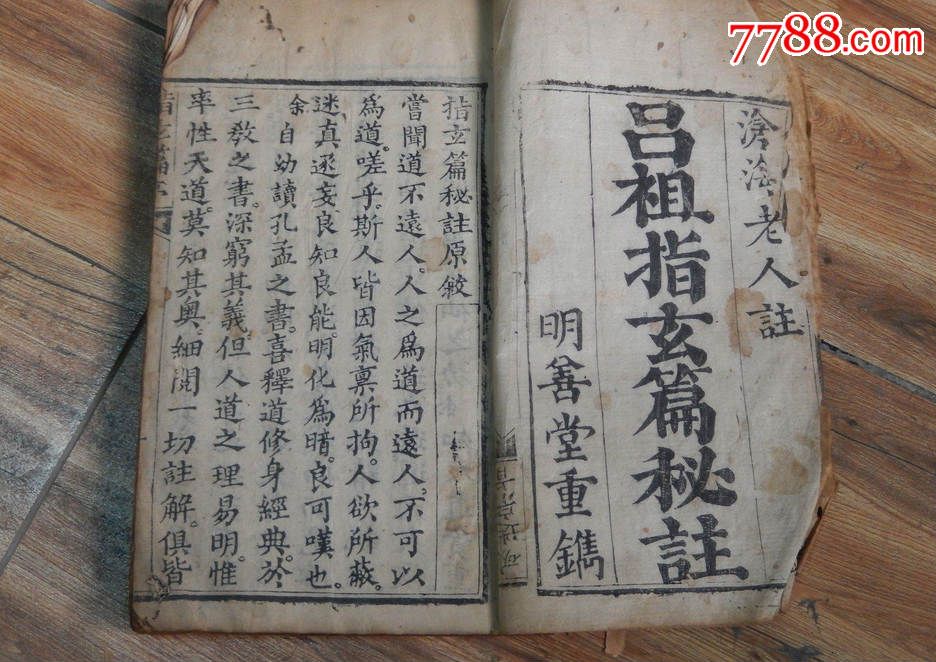 7788.com
滄海老人註
呂祖指玄篇秘註
明善堂重鐫
指玄篇秘註原敘
嘗聞道不遠人。人之為道而遠人。不可以
為道。嗟乎。斯人皆因氣禀所拘。人欲所蔽。
迷真逐妄良知良能。明化為暗。良可嘆也。
余自幼讀孔孟之書。喜釋道修身經典。於
三教之書。深窮其義。但人道之理易明。惟
率性天道。莫知其奧。細閱一切註解。俱皆